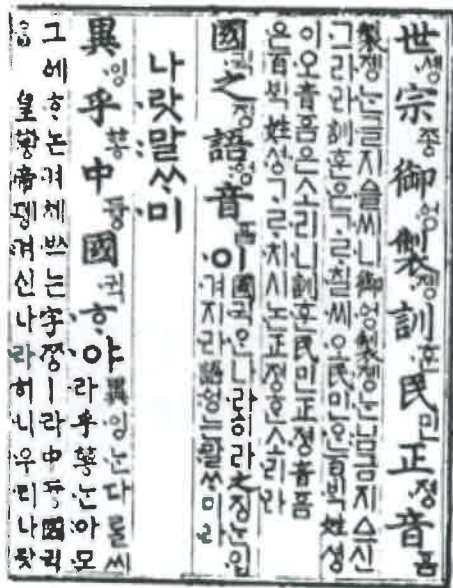 世솅宗종御엉製졩訓훈民민正졍音흠
製졩ᄂᆞᆫ글지ᅀᅳᆯ씨니御엉製졩ᄂᆞᆫ님금지ᅀᅳ신
그리라訓훈은ᄀᆞᄅᆞ칠씨오民민ᄋᆞᆫ百ᄇᆡᆨ姓셩
이오音흠은소리니訓훈民민正졍音흠
은百ᄇᆡᆨ姓셩ᄀᆞᄅᆞ치시논正졍ᄒᆞᆫ소리라
國귁之징語엉音흠이國귁ᄋᆞᆫ나라히라之징ᄂᆞᆫ입
겨지라語엉는말ᄊᆞ미라
나랏말ᄊᆞ미
異잉乎ᅘᅩᆼ中듕國귁ᄒᆞ야異잉ᄂᆞᆫ다ᄅᆞᆯ씨
라乎ᅘᅩᆼᄂᆞᆫ아모
그에ᄒᆞ논겨체ᄡᅳ는字ᄍᆞᆼㅣ라中듕國귁
ᄋᆞᆫ皇ᅘᅪᆼ帝뎽겨신나라히니우리나랏